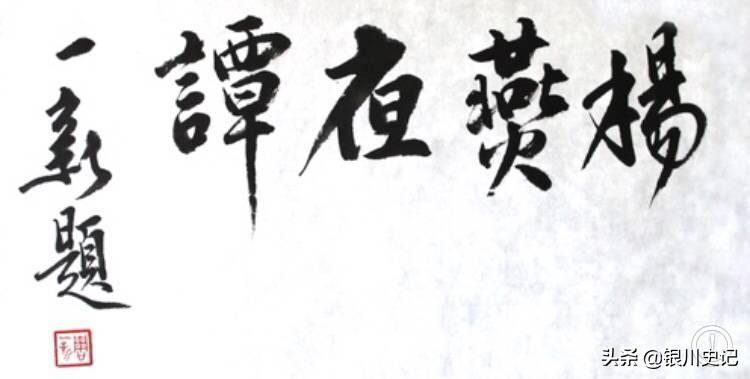 楊燕夜譚
一新題
头条 @银川史记